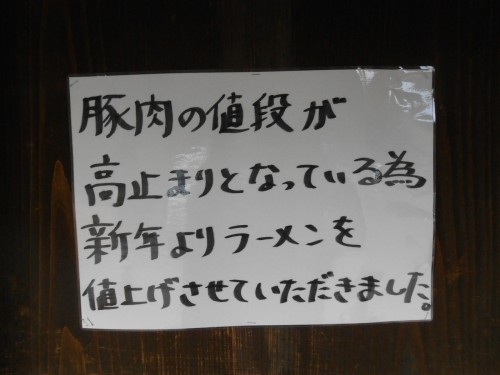 豚肉の値段が
高止まりとなっている為
新年よりラーメンを
値上げさせていただきました。